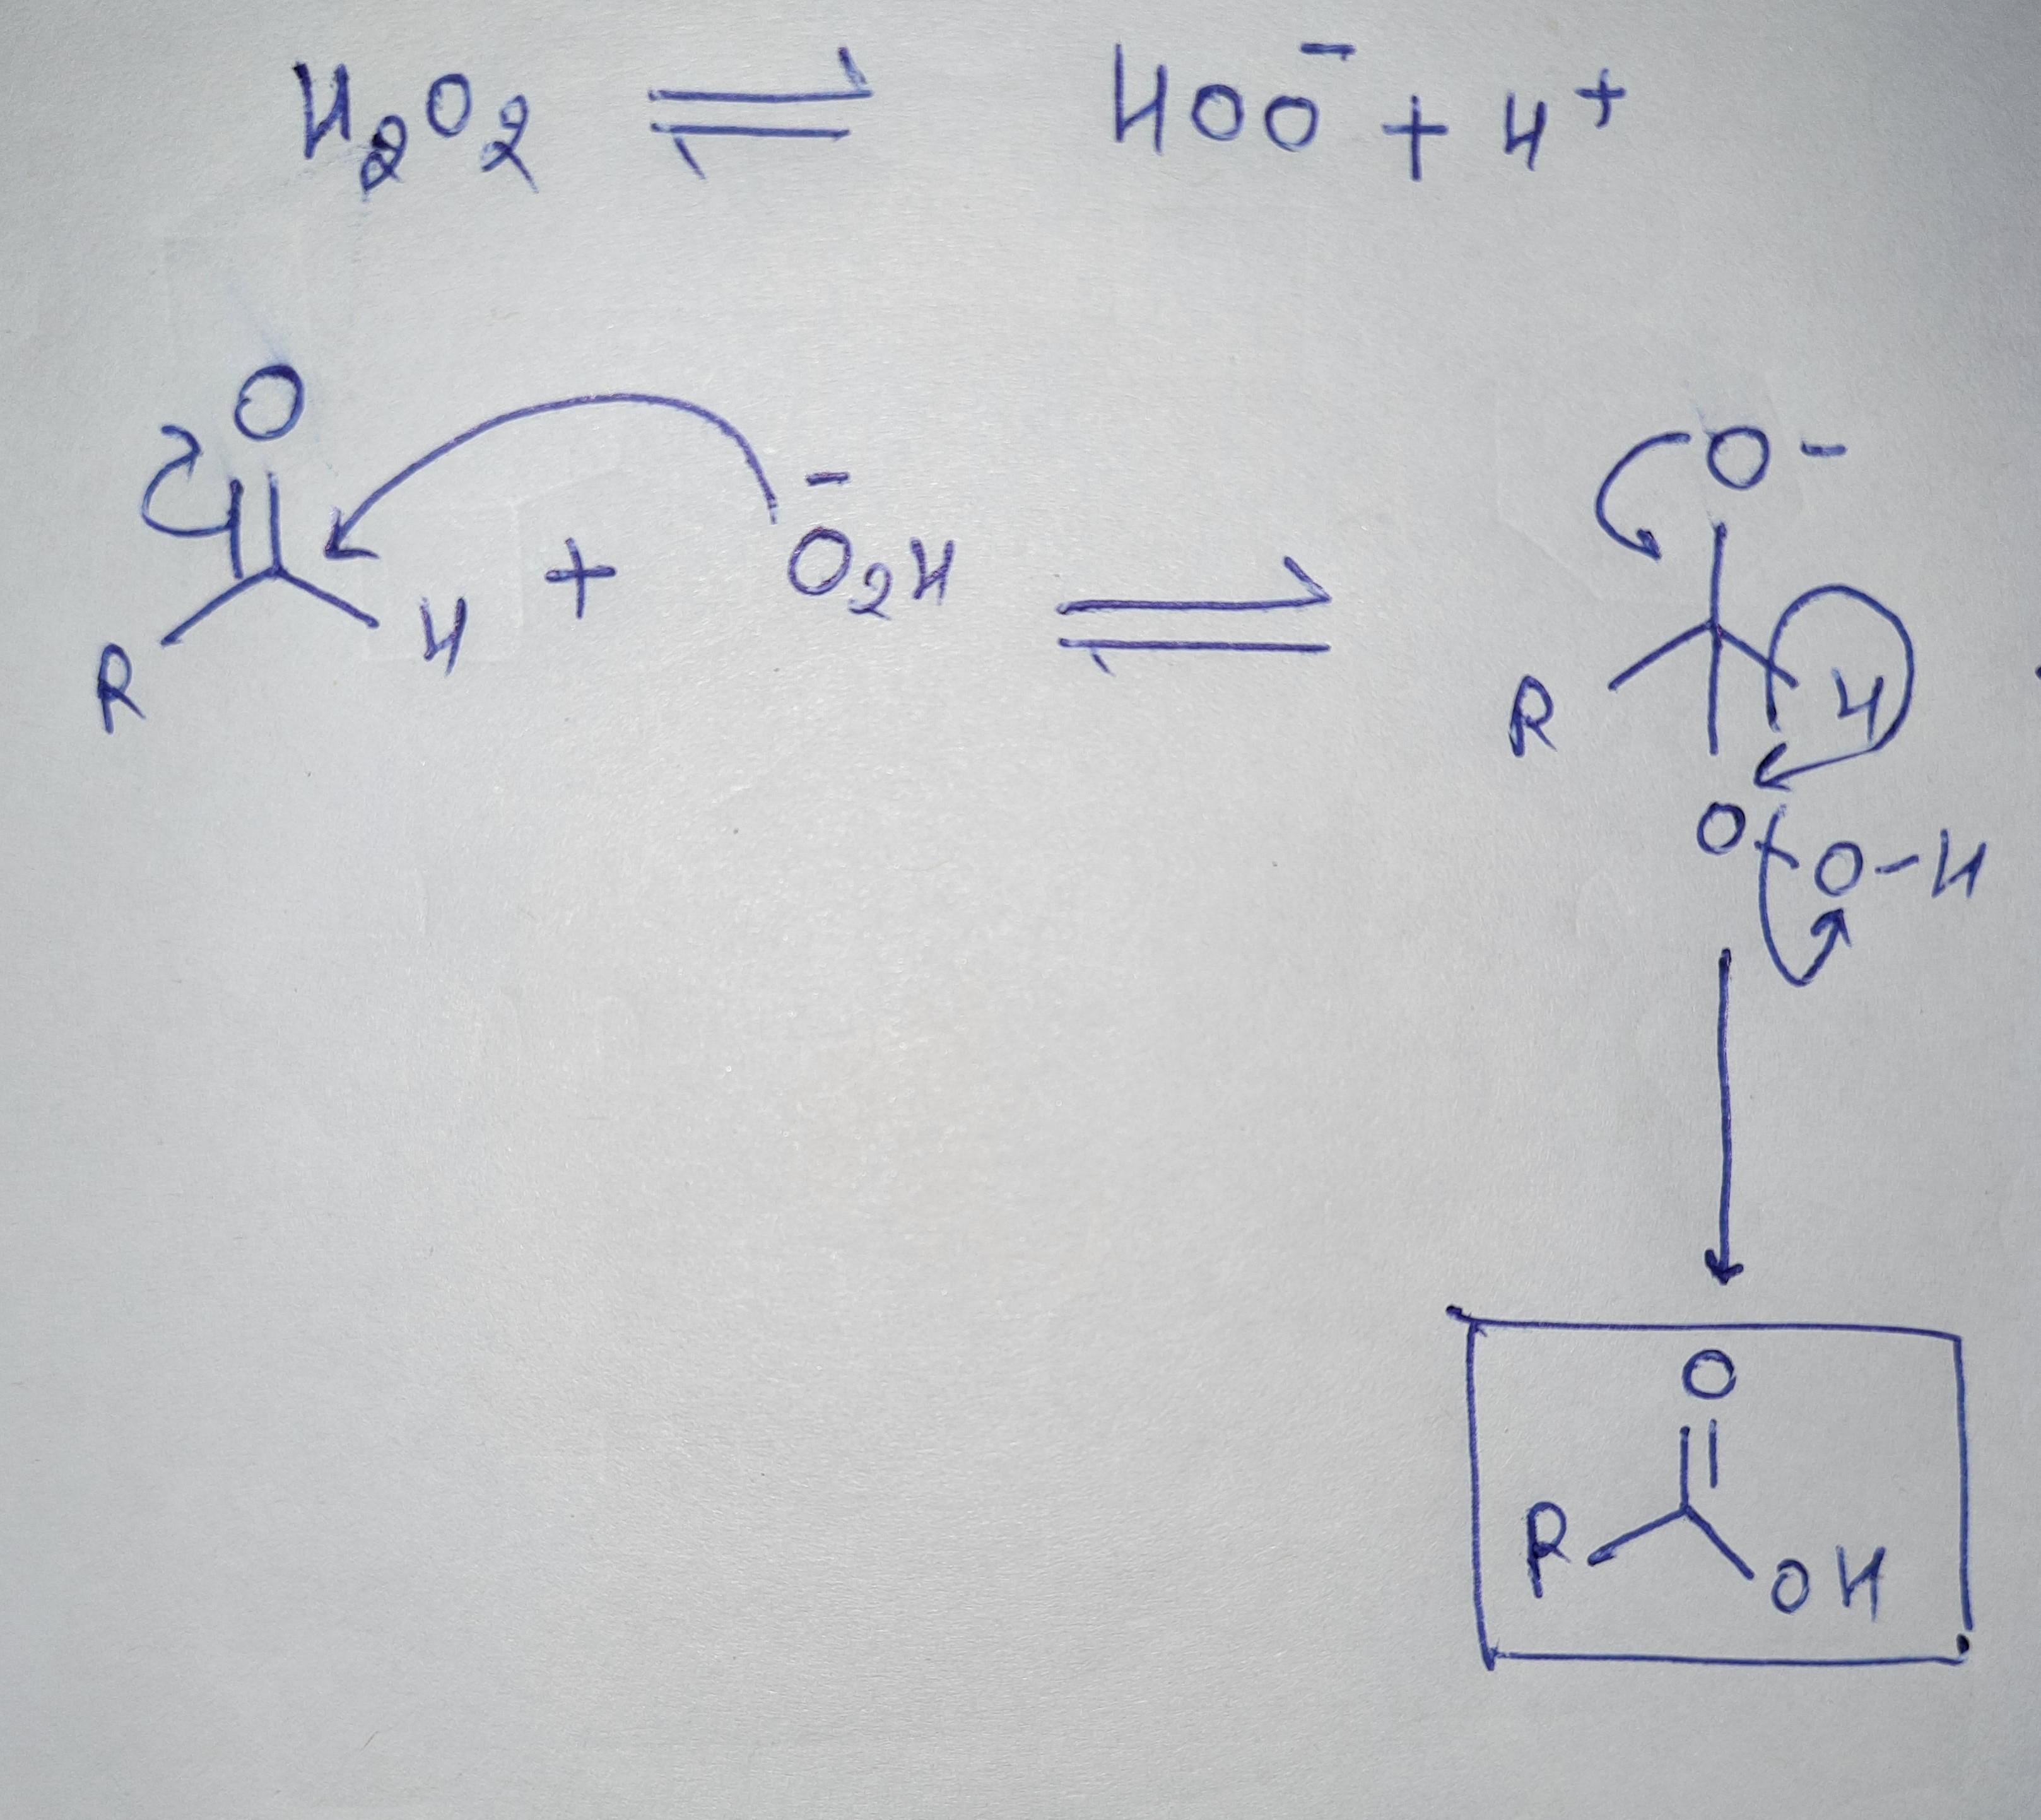 H₂O₂ ⇌ HOO⁻ + H⁺
O
O⁻
R H + ⁻O₂H ⇌ R H
O O-H
O
R OH